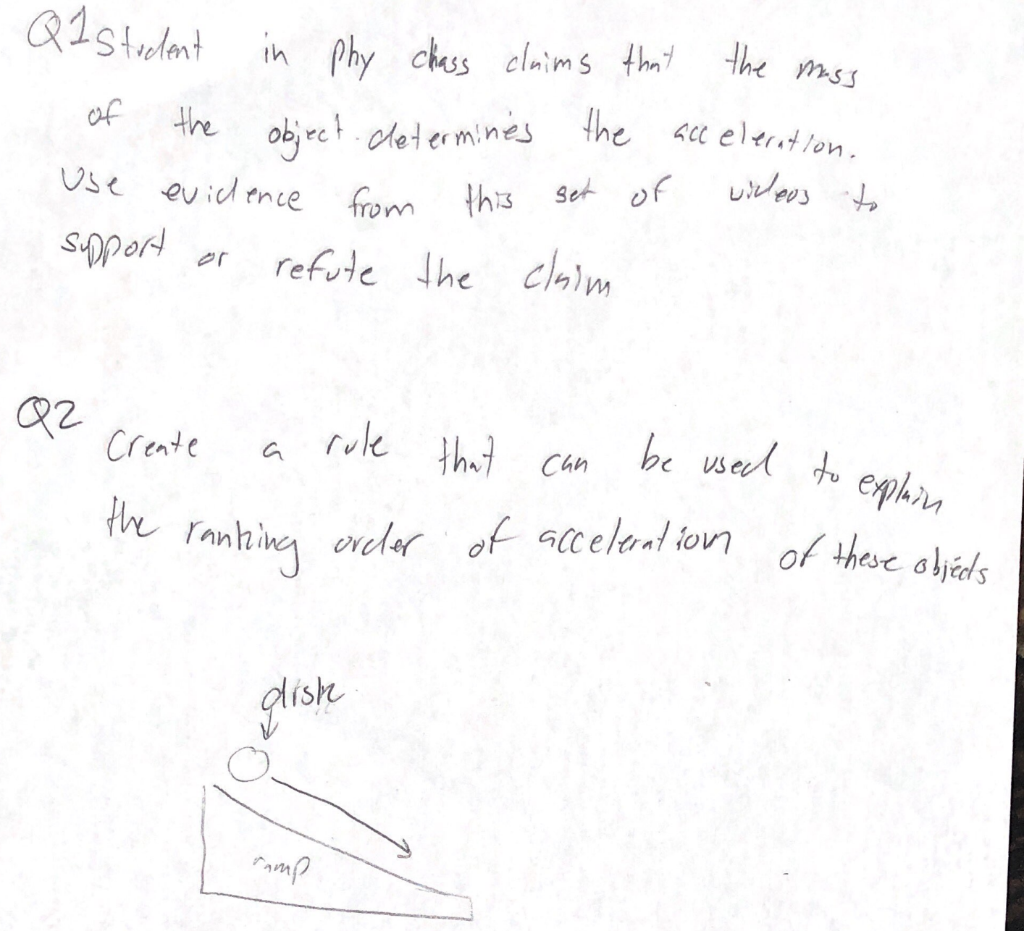 Q1 Student in phy class claims that the mass
of the object determines the acceleration.
Use evidence from this set of videos to
support or refute the claim
Q2
Create a rule that can be used to explain
the ranking order of acceleration of these objects
disk
ramp